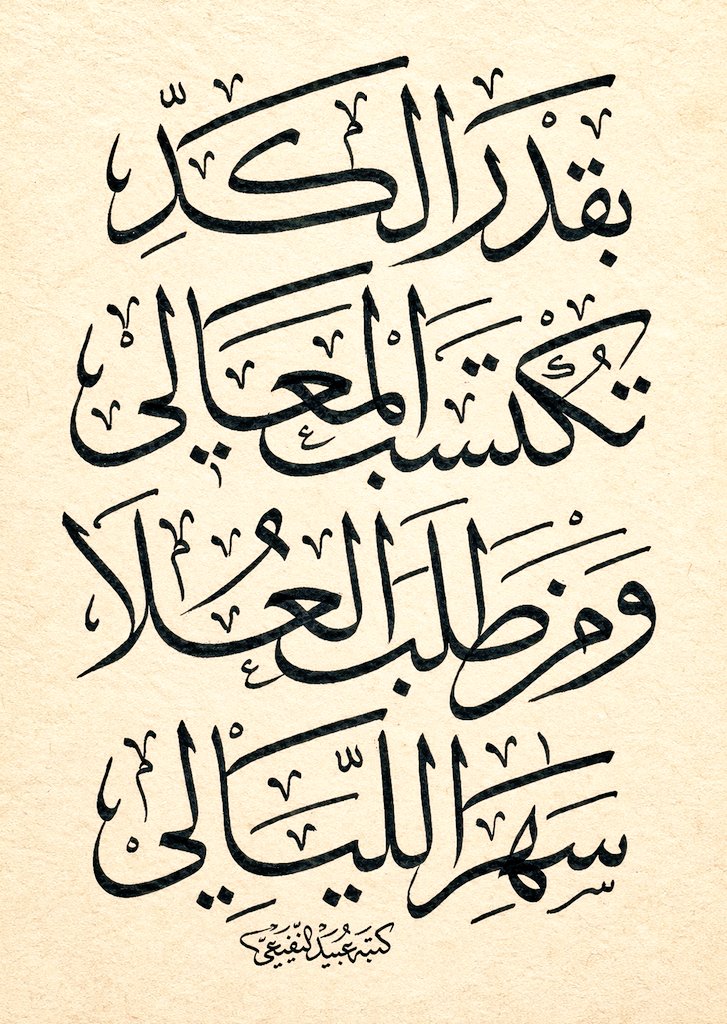 بِقَدْرِ الكَدِّ
تُكْتَسَبُ الْمَعَالِي
وَمَنْ طَلَبَ العُلَا
سَهِرَ اللَّيَالِي
كتبه عُبيد النفيعي